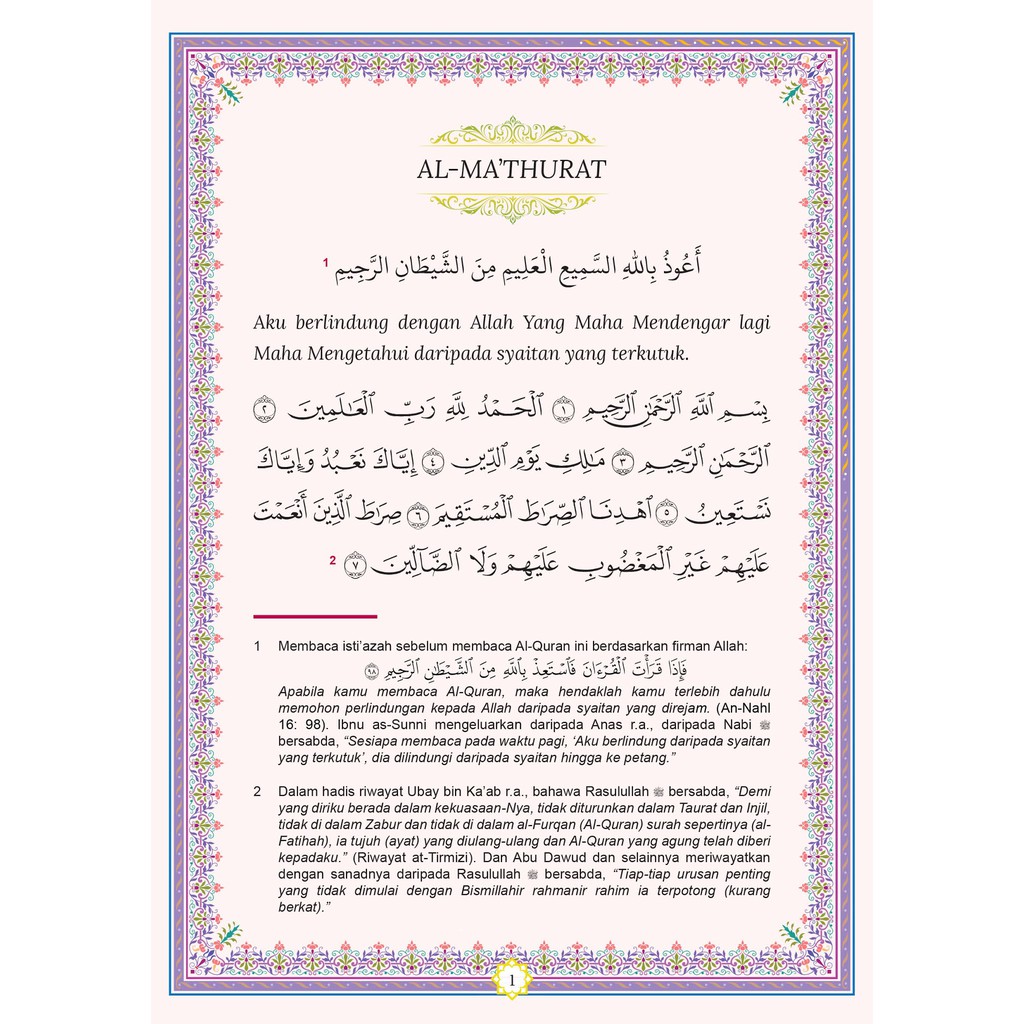 AL-MA’THURAT
أَعُوذُ بِاللهِ السَّمِيعِ الْعَلِيمِ مِنَ الشَّيْطَانِ الرَّجِيمِ 1
Aku berlindung dengan Allah Yang Maha Mendengar lagi
Maha Mengetahui daripada syaitan yang terkutuk.
بِسْمِ ٱللَّهِ ٱلرَّحْمَٰنِ ٱلرَّحِيمِ ١ ٱلْحَمْدُ لِلَّهِ رَبِّ ٱلْعَٰلَمِينَ ٢
ٱلرَّحْمَٰنِ ٱلرَّحِيمِ ٣ مَٰلِكِ يَوْمِ ٱلدِّينِ ٤ إِيَّاكَ نَعْبُدُ وَإِيَّاكَ
نَسْتَعِينُ ٥ ٱهْدِنَا ٱلصِّرَٰطَ ٱلْمُسْتَقِيمَ ٦ صِرَٰطَ ٱلَّذِينَ أَنْعَمْتَ
عَلَيْهِمْ غَيْرِ ٱلْمَغْضُوبِ عَلَيْهِمْ وَلَا ٱلضَّآلِّينَ ٧ 2
1 Membaca isti’azah sebelum membaca Al-Quran ini berdasarkan firman Allah:
فَإِذَا قَرَأْتَ ٱلْقُرْءَانَ فَٱسْتَعِذْ بِٱللَّهِ مِنَ ٱلشَّيْطَٰنِ ٱلرَّجِيمِ ٩٨
Apabila kamu membaca Al-Quran, maka hendaklah kamu terlebih dahulu
memohon perlindungan kepada Allah daripada syaitan yang direjam. (An-Nahl
16: 98). Ibnu as-Sunni mengeluarkan daripada Anas r.a., daripada Nabi ﷺ
bersabda, “Sesiapa membaca pada waktu pagi, ‘Aku berlindung daripada syaitan
yang terkutuk’, dia dilindungi daripada syaitan hingga ke petang.”
2 Dalam hadis riwayat Ubay bin Ka’ab r.a., bahawa Rasulullah ﷺ bersabda, “Demi
yang diriku berada dalam kekuasaan-Nya, tidak diturunkan dalam Taurat dan Injil,
tidak di dalam Zabur dan tidak di dalam al-Furqan (Al-Quran) surah sepertinya (al-
Fatihah), ia tujuh (ayat) yang diulang-ulang dan Al-Quran yang agung telah diberi
kepadaku.” (Riwayat at-Tirmizi). Dan Abu Dawud dan selainnya meriwayatkan
dengan sanadnya daripada Rasulullah ﷺ bersabda, “Tiap-tiap urusan penting
yang tidak dimulai dengan Bismillahir rahmanir rahim ia terpotong (kurang
berkat).”
1